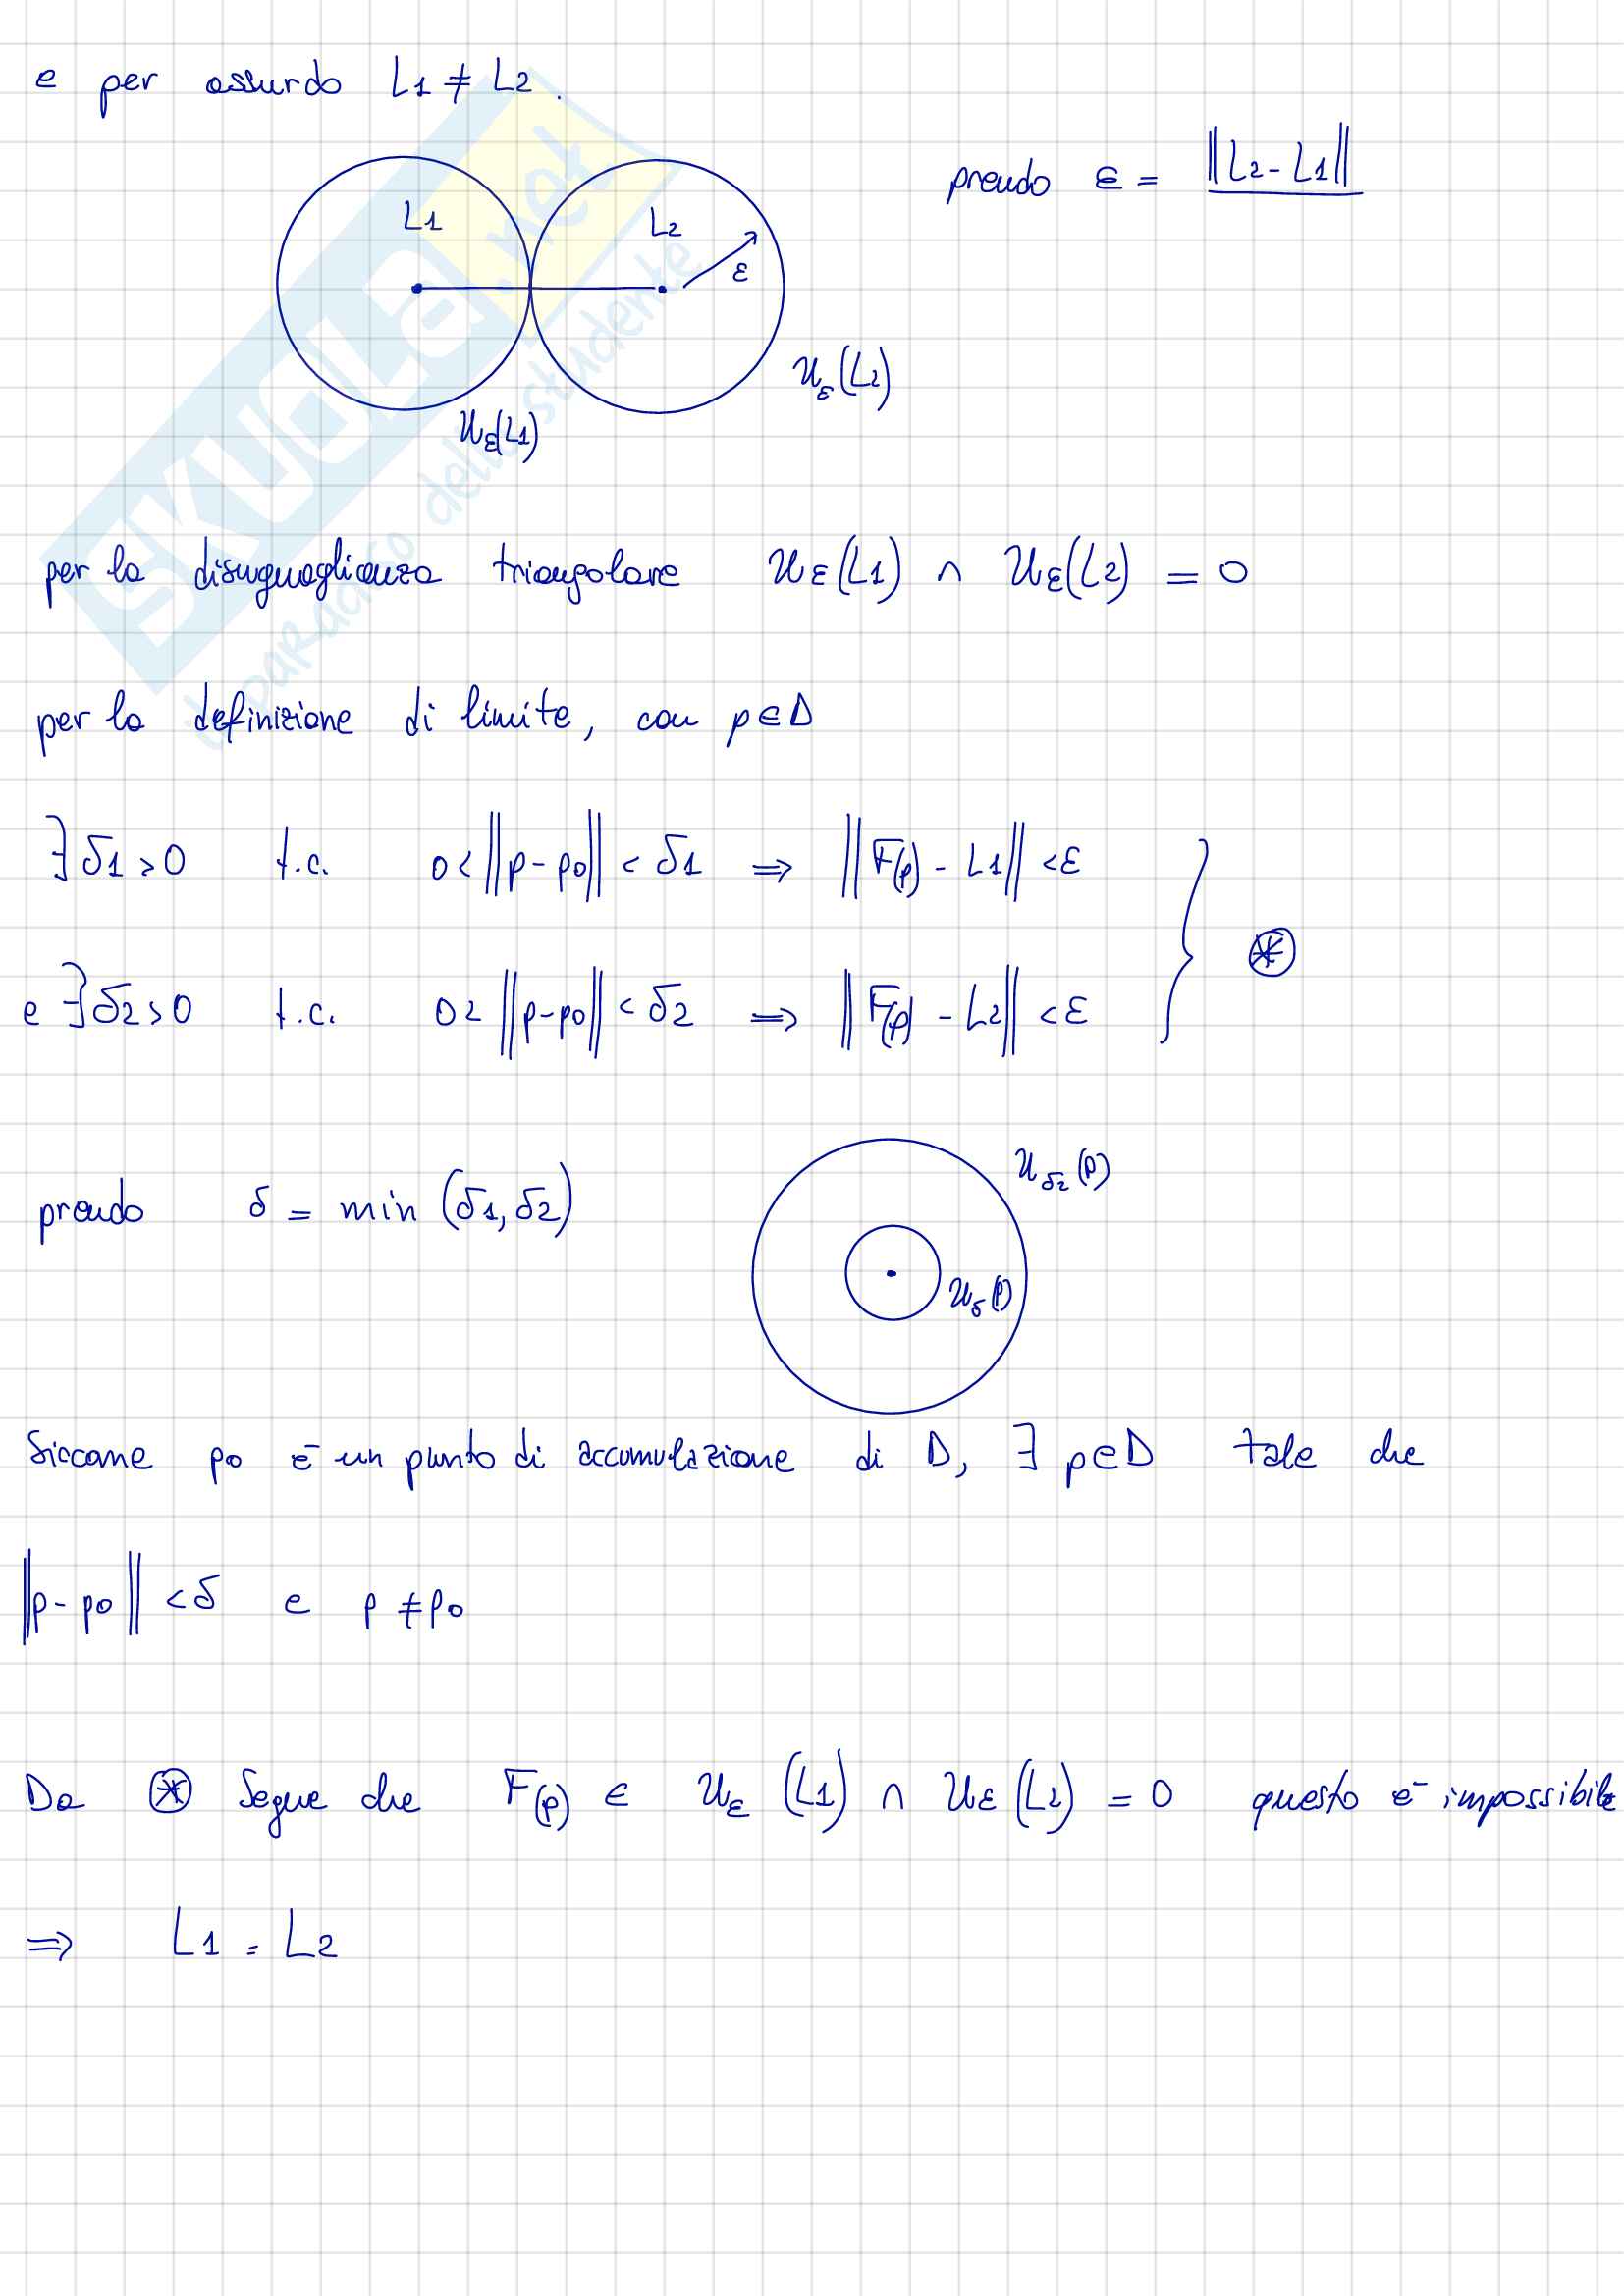 e per assurdo L1 ≠ L2.
prendo ε = ||L2 - L1||
L1
L2
ε
U_ε(L2)
U_ε(L1)
SKUOLA.net
il paradiso dello studente
per la disuguaglianza triangolare U_ε(L1) ∩ U_ε(L2) = 0
per la definizione di limite, con p∈D
∃ δ1 > 0 t.c. 0 < ||p - p0|| < δ1 ⇒ ||F(p) - L1|| < ε
*
e ∃ δ2 > 0 t.c. 0 < ||p - p0|| < δ2 ⇒ ||F(p) - L2|| < ε
prendo δ = min (δ1, δ2)
U_δ2(p)
U_δ(p)
Siccome p0 è un punto di accumulazione di D, ∃ p∈D tale che
||p - p0|| < δ e p ≠ p0
Da * Segue che F(p) ∈ U_ε (L1) ∩ U_ε (L2) = 0 questo è impossibile
⇒ L1 = L2